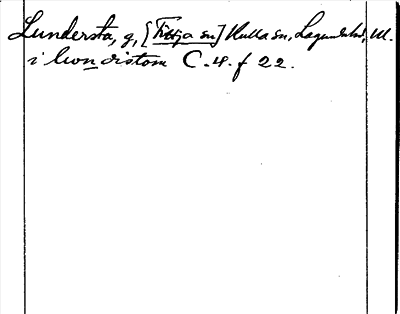 Lundersta, g, [Fröja sn] Kulla sn, Lagunda hd, U.
i lwndistom C. 4. f 22.